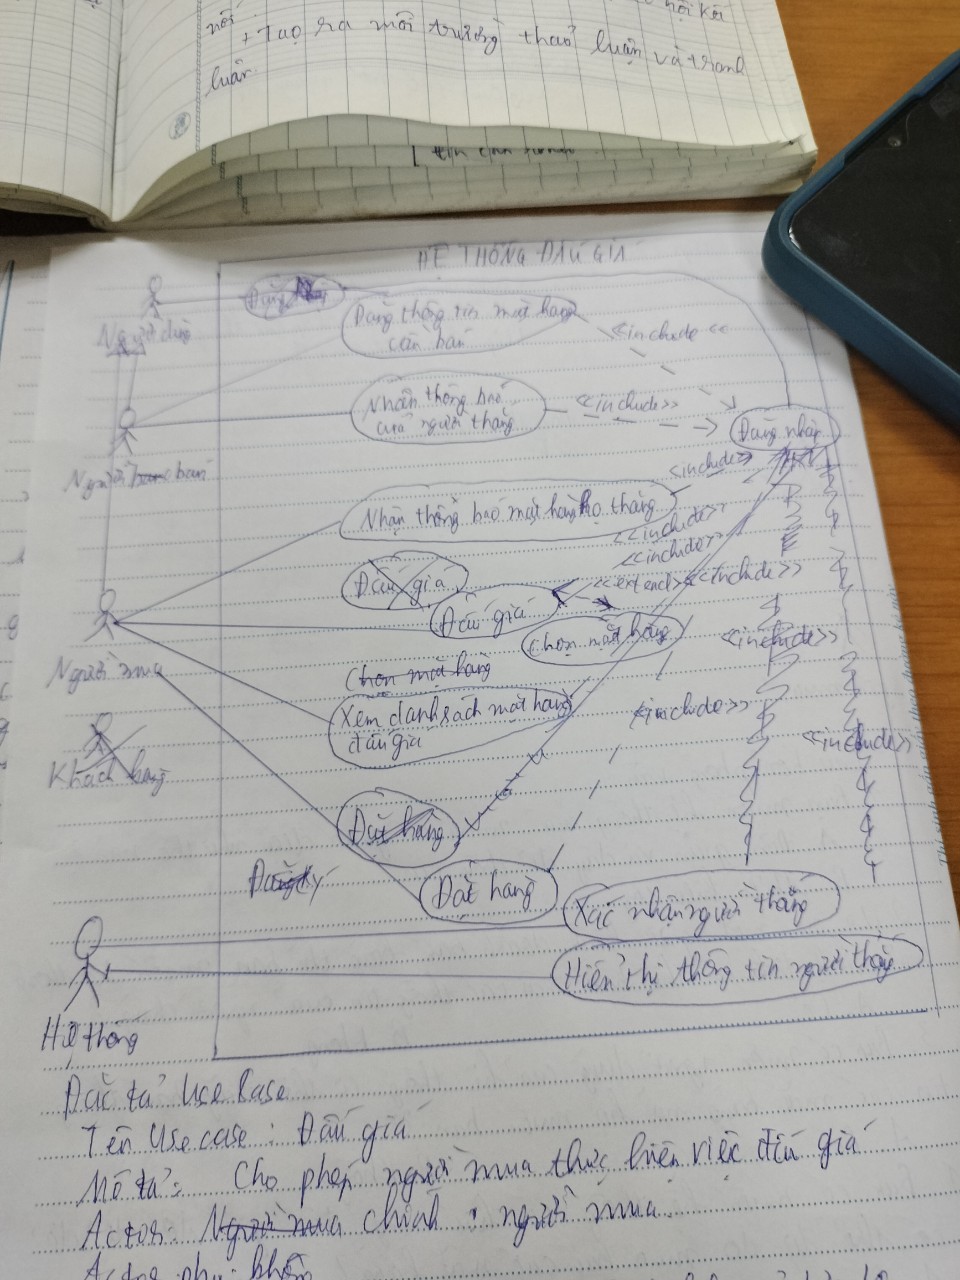 nói.
+ Tạo ra môi trường thảo luận và tranh
luận.
HỆ THỐNG ĐẤU GIÁ
Đăng
Đăng thông tin mặt hàng
cần bán
<<include <<
Người dùng
Nhận thông báo
của người thắng
<<include>>
Đăng nhập
Người bán
<<include>>
Nhận thông báo mặt hàng họ thắng
<<include>>
<<include>>
Đấu giá
<<extend>>
<<include>>
Đấu giá
Chọn mặt hàng
<<include>>
Người mua
Chọn mặt hàng
Xem danh sách mặt hàng
đấu giá
<<include>>
<<include>>
Khách hàng
Đặt hàng
Đăng ký
Đặt hàng
Xác nhận người thắng
Hiển thị thông tin người thắng
Hệ thống
Đặc tả Use Case
Tên Use case: Đấu giá
Mô tả: Cho phép người mua thực hiện việc đấu giá
Actor: Người mua chính: người mua.
Actor phụ: không